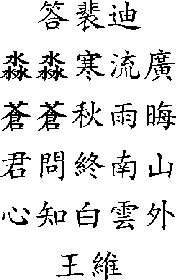 答裴迪
淼淼寒流廣
蒼蒼秋雨晦
君問終南山
心知白雲外
王維